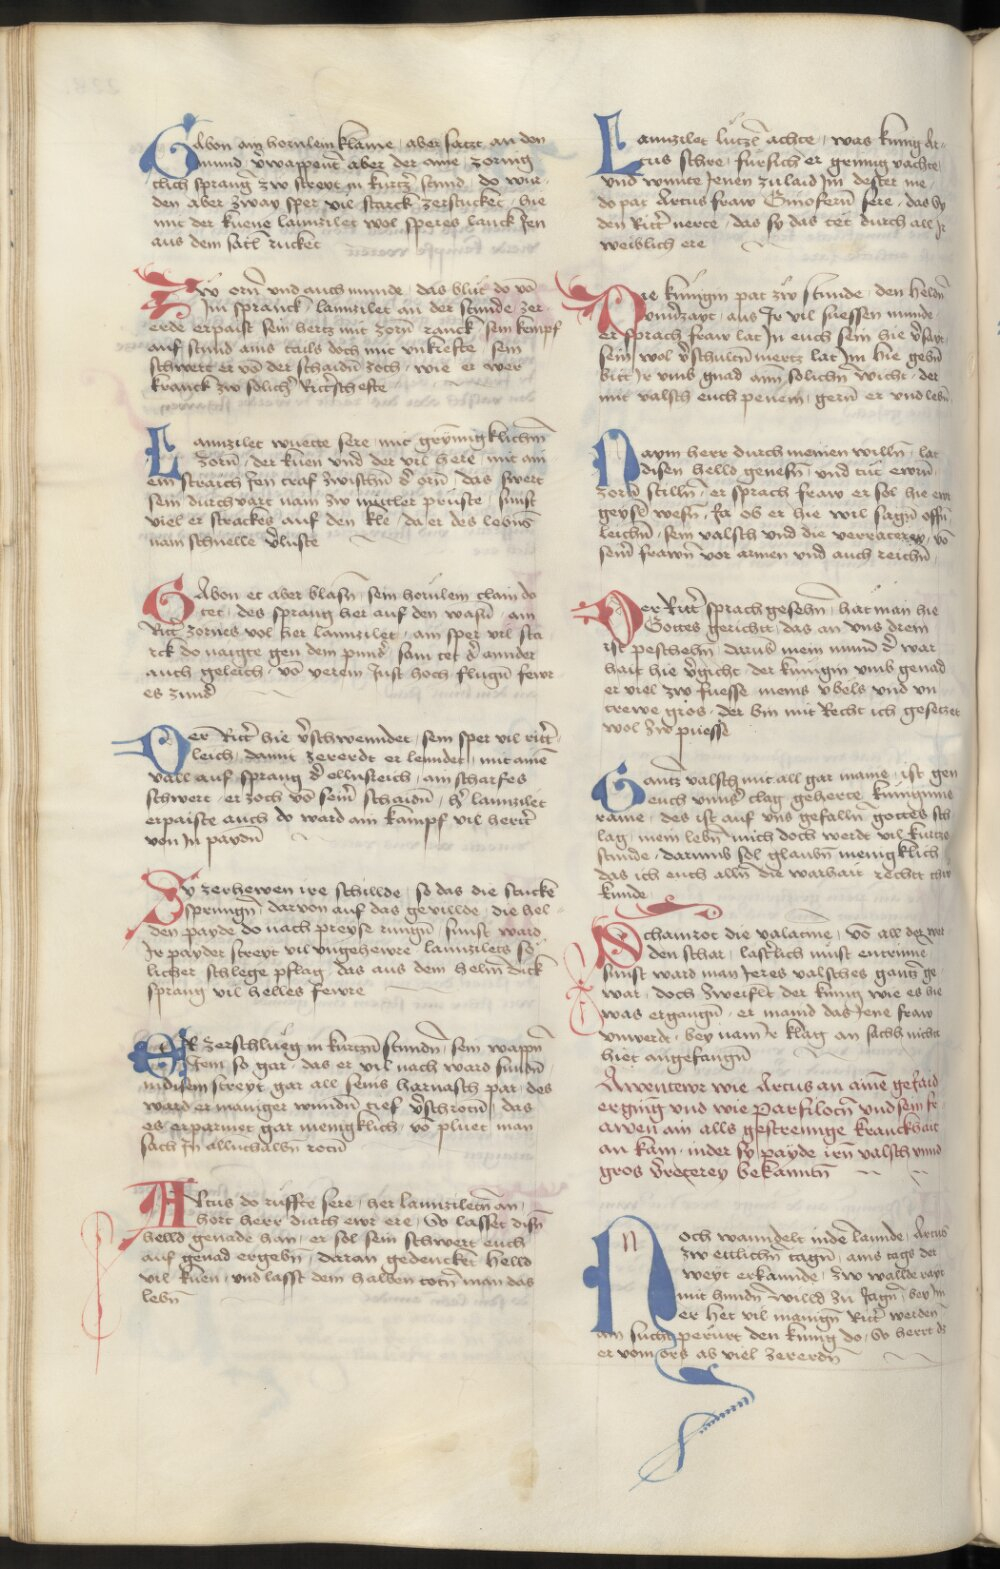 Gabon ain hornlein klaine · aber satzt an den
mund v̄wappent aber der aine · zornig
clich sprang zw streyt in kurtz̄ stund · do wur
den aber zway sper vil starck zerstucket · hie
mit der kuene lannzilet wol speres lanck Jen
aus dem satl rucket
Zw orn̄ und auch munde · das blut do vō
Im spranck lannzilet an der stunde zer
erde erpaist sein hertz mit zorn̄ ranck sein kempf
auf stund ains tails doch mit unkrefte · sein
schwert er vō der schaidn̄ zoch · wie er wer
kranck zw solich̄ Ritt̄schefte
Lannzilet wuette sere · mit grymigklichm̄
zorn̄ · der kuen und der vil here · mit ain
em straich Jen traf zwischn̄ d̄ orn̄ · das swert
sein durchvart nam zw mittler prüste · sunst
viel er strackes auf den kle · da er des lebn̄s
nam schnelle v̄luste
Gabon et aber blasn̄ · sein hornlein clain do
tet · des sprang her auf den wasn̄ · ain
Ritt̄ zornes vol her lannzilet · ain sper vil sta
rck do naigte gen dem puns̄ · sam tet d̄ annder
auch geleich · vō verem Just hoch flugn̄ fewr
es zund̄
Der Ritt̄ hie v̄schwenndet · sein sper vil ritt̄
leich · damit zererdt er lenndet · mit ainē
vall auf sprang d̄ ellnsreich · ain scharfes
schwert · er zoch vō seim̄ schaidn̄ · h̄ lannzilet
erpaiste auch do ward ain kampf vil hert̄
von In paydn̄
Sy zerhewen ire schillde · so das die stucke
sprungn̄ · darvon auf das gevillde · die hel
den payde do nach preyse rungn̄ · sunst ward
Jr payder streyt vil ungehewre · lannzilets so
licher schlege pflag · das aus dem helm̄ dick
sprang vil helles fewre
Er zerschlueg in kurtzn̄ stundn̄ · sein wappn̄
Jem so gar · das er vil nach ward fundn̄
in disem streyt gar all seins harnasch par · des
ward er maniger wundn̄ tief v̄schrotn̄ · das
es erparmet gar menigklich · vō pluet man
sach In allnthalbn̄ rotn̄
Artus do ruffte sere · her lannziletn̄ an
hort herr durch ewr ere · So lasset disn̄
helld genade han · er sol sein schwert euch
auf genad ergebn̄ · daran gedenckt helld
vil kuen · und lasst dem halben totn̄ man das
lebn̄
Lannzilet lutzl achte · was kunig Ar
tus schre · fursich er grimig vachte
und wunte Jenen zu laid Im dester me
do pat Artus fraw Ginofern̄ sere · das sy
den Ritt̄ nerte · das sy das tet durch all Jr
weiblich ere
Die kunigin pat zw stunde · den heldn̄
unv̄zayt · aus Jr vil suessen munde
er sprach fraw lat In euch sein hie v̄sayt
sein wol v̄schultn̄ mertz lat Im hie gebn̄
bitt Jr umb gnad aim̄ solichn̄ wicht · der
mit valsch euch penem · gern̄ er und lebn̄
Naym herr durch meinen willn̄ · lat
disen helld genesn̄ · und tüt ewrn̄
zorn̄ stilln̄ · er sprach fraw er sol hie ewr
geysl wesn̄ · Ja ob er hie wil sagn̄ offn̄
leichn̄ · sein valsch und die verraterey · vō
seim̄ frawn̄ vor armen und auch reichn̄
Der Ritt̄ sprach gesehn̄ · hat man hie
Gottes gerichtt · das an uns drein
ist peschehn̄ · darub̄ mein mund d̄ war
hait hie v̄gicht · der kunigin umb genad
er viel zw fuesse · meins ubels und un
trewe gros · der bin mit Recht ich gesetzet
wol zw puesse
Gantz valsch mit all gar maine · ist gen
euch unns̄ clag geherte kuniginne
raine · des ist auf uns gefalln̄ gottes sch
lag · mein lebn̄ mich doch werdt vil kurtze
stunde · darumb sol glaubn̄ menigklich
das ich euch alln̄ die warhait rechtt thu
kunde
Schamrot die valatine · vō all der wer
den schar · last̄lich must entrinne
sunst ward man Jeres valsches gantz ge
war · doch zweiflt der kunig wie es hie
was ergangn̄ · er maind das Jene fraw
unwerdt · bey nam̄ r klag an sach nicht
hiet angefangn̄
Awentewr wie Artus an ainē gejaid
erging und wie Parsilotn̄ und sein fr
awen ain alls gestrennge kranckhait
an kam · inder sy payde irn̄ valsch unnd
gros v̄reterey bekanntn̄
Noch wanndelt inde Lannde · Artus
zw etlichn̄ tagn̄ · ains tags der
weyt erkannde · zw wallde rayt
mit hundn̄ willd zu Jagn̄ · bey Im
er het vil manign̄ Ritt̄ werden
ain sucht perurt den kunig do · So herrt dz
er vom ors ab viel zererdn̄